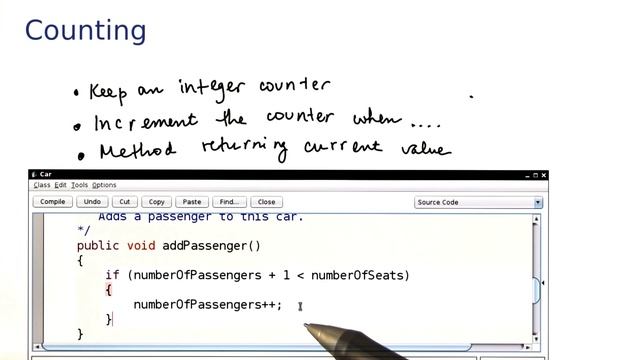 Counting
• Keep an integer counter
• Increment the counter when ....
• Method returning current value
Car
Class Edit Tools Options
Compile Undo Cut Copy Paste Find... Close Source Code
Adds a passenger to this car.
*/
public void addPassenger()
{
if (numberOfPassengers + 1 < numberOfSeats)
{
numberOfPassengers++;
}
}